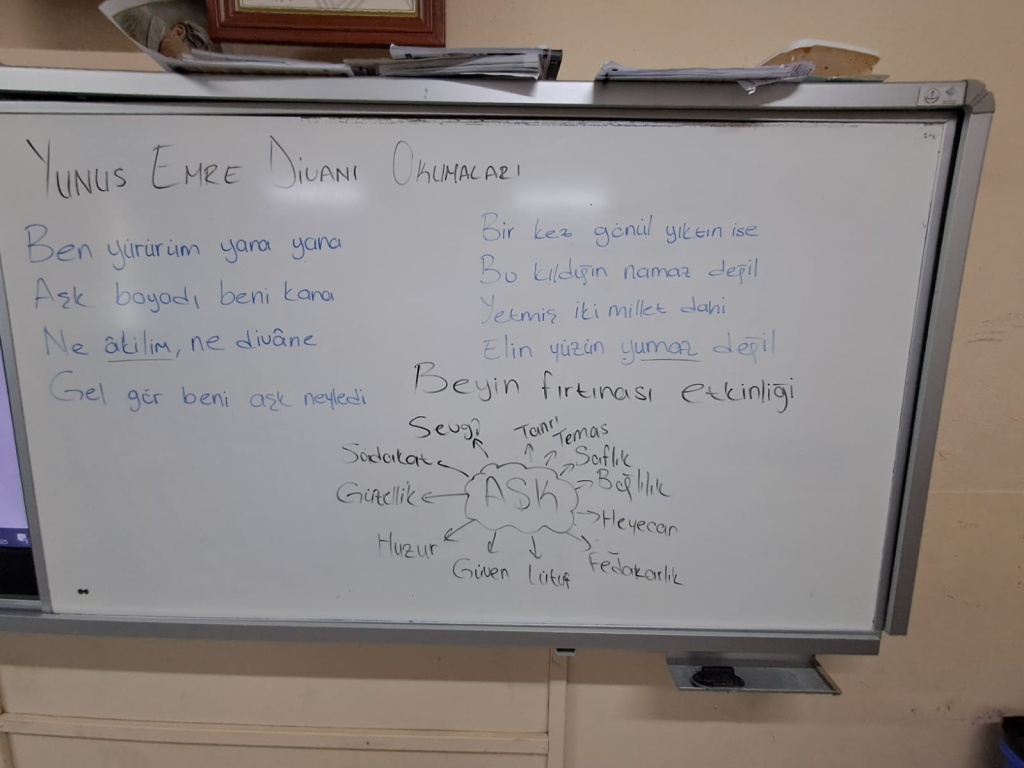 YUNUS EMRE DİVANI OKUMALARI
Ben yürürüm yana yana
Aşk boyadı beni kana
Ne âkilim, ne divâne
Gel gör beni aşk neyledi
Bir kez gönül yıktın ise
Bu kıldığın namaz değil
Yetmiş iki millet dahi
Elin yüzün yumaz değil
Beyin fırtınası etkinliği
AŞK
Sevgi
Tanrı
Temas
Saflık
Bağlılık
Heyecan
Fedakarlık
Lütuf
Güven
Huzur
Güzellik
Sadakat